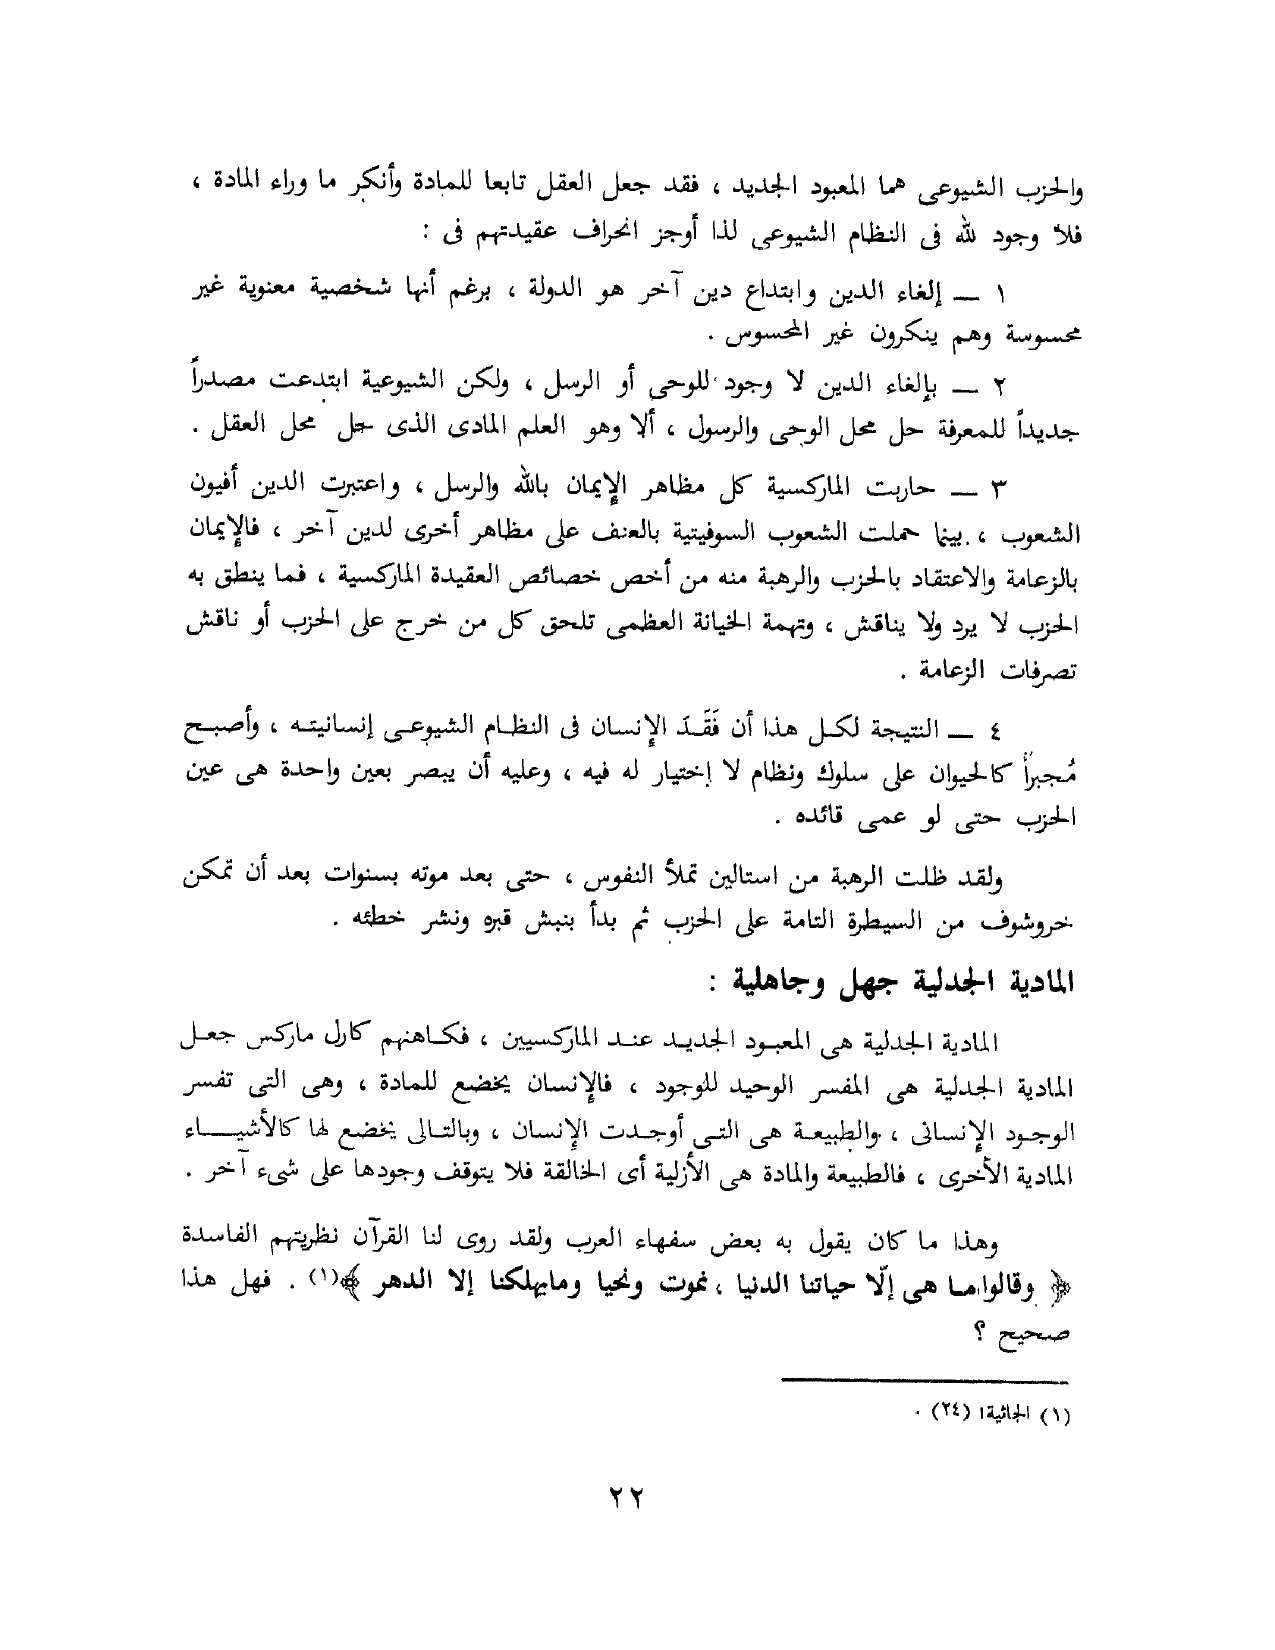 والحزب الشيوعى هما المعبود الجديد ، فقد جعل العقل تابعا للمادة وأنكر ما وراء المادة ،
فلا وجود لله فى النظام الشيوعى لذا أوجز انحراف عقيدتهم فى :
١ ــ إلغاء الدين وابتداع دين آخر هو الدولة ، برغم أنها شخصية معنوية غير
محسوسة وهم ينكرون غير المحسوس .
٢ ــ بإلغاء الدين لا وجود للوحى أو الرسل ، ولكن الشيوعية ابتدعت مصدراً
جديداً للمعرفة حل محل الوحى والرسول ، ألا وهو العلم المادى الذى حل محل العقل .
٣ ــ حاربت الماركسية كل مظاهر الإيمان بالله والرسل ، واعتبرت الدين أفيون
الشعوب ، بينما حملت الشعوب السوفيتية بالعنف على مظاهر أخرى لدين آخر ، فالإيمان
بالزعامة والاعتقاد بالحزب والرهبة منه من أخص خصائص العقيدة الماركسية ، فما ينطق به
الحزب لا يرد ولا يناقش ، وتهمة الخيانة العظمى تلحق كل من خرج على الحزب أو ناقش
تصرفات الزعامة .
٤ ــ النتيجة لكل هذا أن فَقَدَ الإنسان فى النظام الشيوعى إنسانيته ، وأصبح
مُجبراً كالحيوان على سلوك ونظام لا إختيار له فيه ، وعليه أن يبصر بعين واحدة هى عين
الحزب حتى لو عمى قائده .
ولقد ظلت الرهبة من استالين تملأ النفوس ، حتى بعد موته بسنوات بعد أن تمكن
خروشوف من السيطرة التامة على الحزب ثم بدأ بنبش قبره ونشر خطئه .
المادية الجدلية جهل وجاهلية :
المادية الجدلية هى المعبود الجديد عند الماركسيين ، فكاهنهم كارل ماركس جعل
المادية الجدلية هى المفسر الوحيد للوجود ، فالإنسان يخضع للمادة ، وهى التى تفسر
الوجود الإنسانى ، والطبيعة هى التى أوجدت الإنسان ، وبالتالى يخضع لها كالأشياء
المادية الأخرى ، فالطبيعة والمادة هى الأزلية أى الخالقة فلا يتوقف وجودها على شىء آخر .
وهذا ما كان يقول به بعض سفهاء العرب ولقد روى لنا القرآن نظريتهم الفاسدة
﴿ وقالوا ما هى إلّا حياتنا الدنيا ، نموت ونحيا ومايهلكنا إلا الدهر ﴾(١) . فهل هذا
صحيح ؟
(١) الجاثية١ (٢٤) .
٢٢